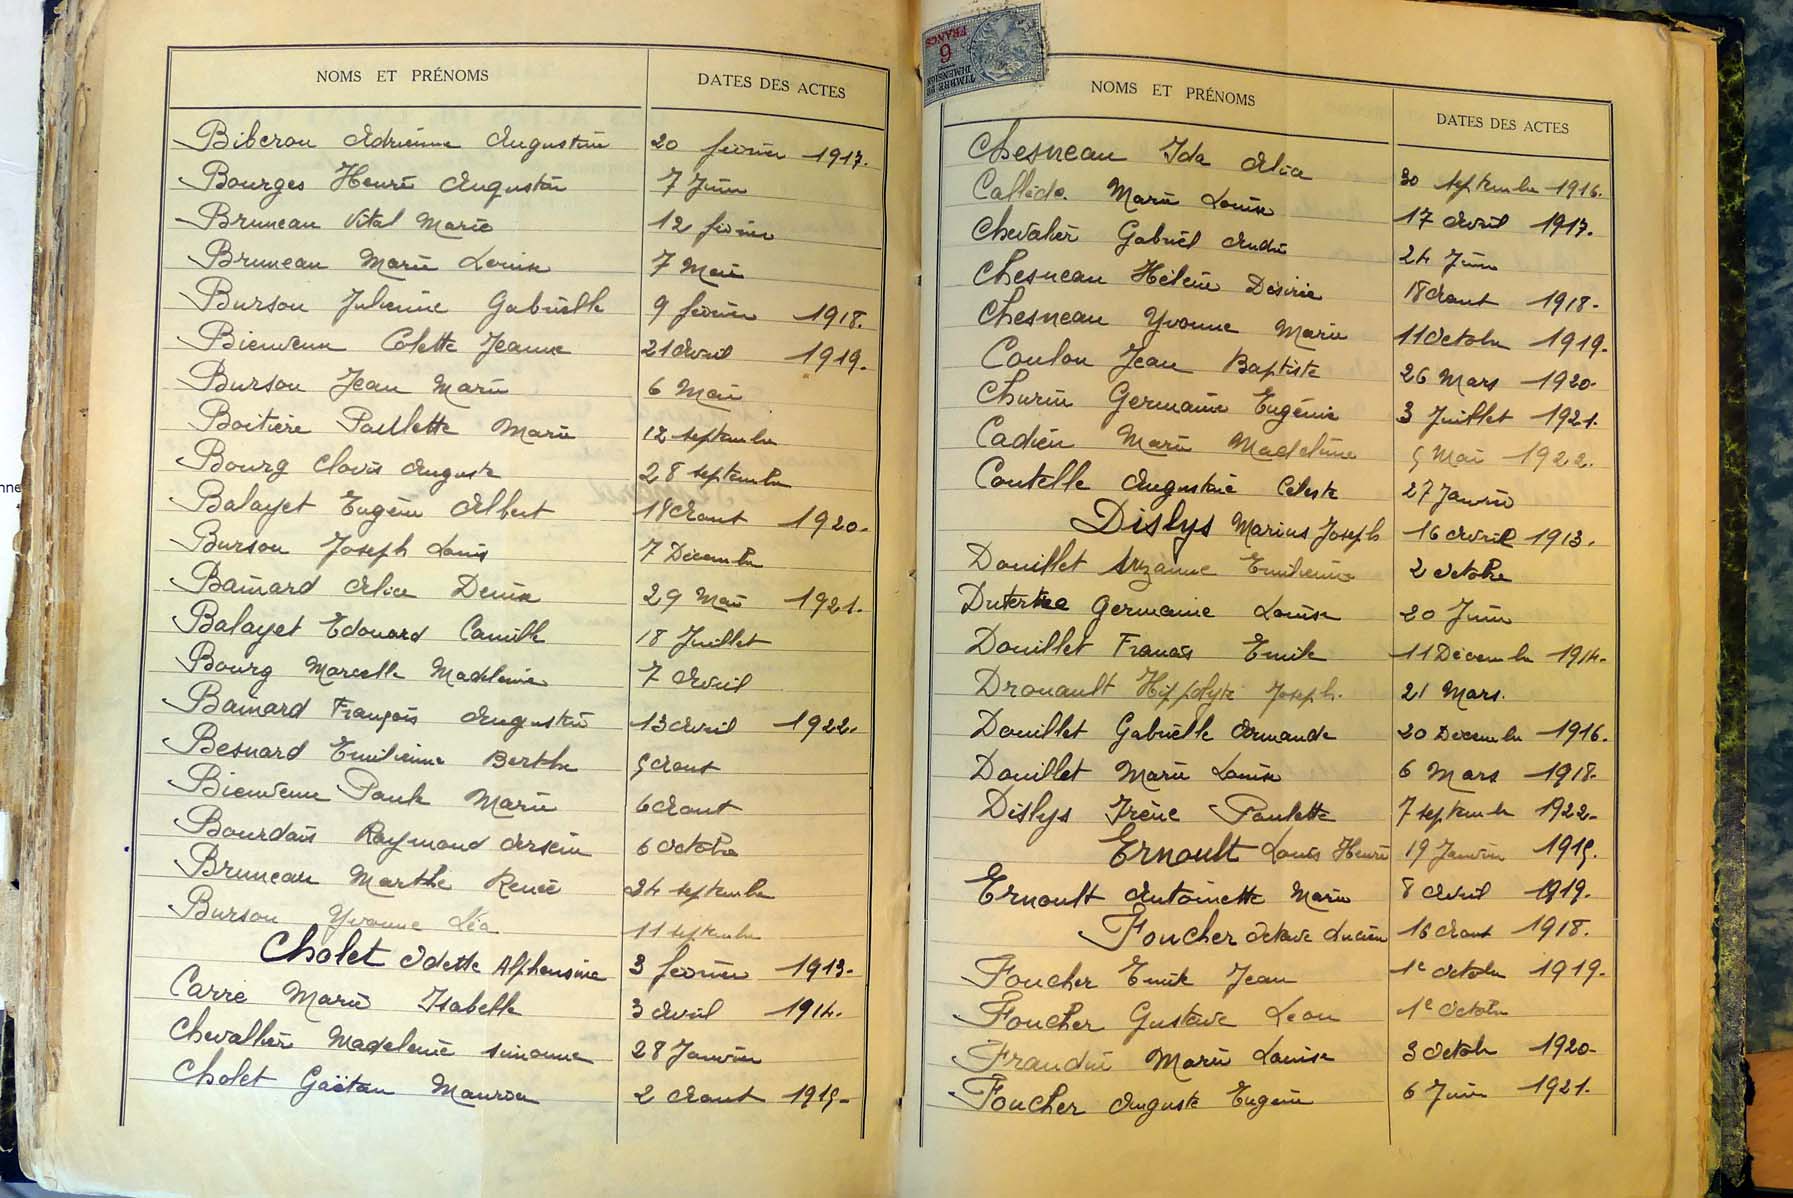 NOMS ET PRÉNOMS DATES DES ACTES
Biberon Adrienne Augustine 20 février 1917.
Bourges Henri Augustin 7 Juin
Bruneau Vital Marie 12 février
Bruneau Marie Louise 7 Mai
Burson Julienne Gabrielle 9 février 1918.
Bienvenu Colette Jeanne 21 Avril 1919.
Burson Jean Marie 6 Mai
Boitière Paulette Marie 12 septembre
Bourg Clovis Auguste 28 septembre
Balayet Eugène Albert 18 Aout 1920.
Burson Joseph Louis 7 Décembre
Bainard Alice Denise 29 Mai 1921.
Balayet Edouard Camille 18 Juillet
Bourg Marcelle Madeleine 7 Avril
Bainard François Augustin 13 Avril 1922.
Besnard Emilienne Berthe 5 Aout
Bienvenu Paule Marie 6 Aout
Bourdais Raymond Arsène 6 Octobre
Bruneau Marthe Renée 24 septembre
Burson Yvonne Léa 11 septembre
Cholet Odette Alphonsine 3 février 1913.
Carré Marie Isabelle 3 Avril 1914.
Chevallier Madeleine Simonne 28 Janvier
Cholet Gaëtan Maurice 2 Aout 1915.
6
FRANCS
TIMBRE DE
DIMENSION
NOMS ET PRÉNOMS DATES DES ACTES
Chesneau Ida Alice 30 septembre 1916.
Marie Louise 17 Avril 1917.
Chevalier Gabriel André 24 Juin
Chesneau Hélène Désirée 18 Aout 1918.
Chesneau Yvonne Marie 11 Octobre 1919.
Coulon Jean Baptiste 26 Mars 1920.
Churin Germaine Eugénie 3 Juillet 1921.
Cadieu Marie Madeleine 5 Mai 1922.
Coutelle Augustine Céleste 27 Janvier
Dislys Marius Joseph 16 Avril 1913.
Douillet Suzanne Emilienne 2 Octobre
Dutertre Germaine Louise 20 Juin
Douillet Francis Emile 11 Décembre 1914.
Drouault Hippolyte Joseph. 21 Mars.
Douillet Gabrielle Armande 20 Décembre 1916.
Douillet Marie Louise 6 Mars 1918.
Dislys Irène Paulette 7 septembre 1922.
Ernoult Louis Henri 19 Janvier 1915.
Ernoult Antoinette Marie 8 Avril 1919.
Foucher Octave Lucien 16 Aout 1918.
Foucher Emile Jean 1e Octobre 1919.
Foucher Gustave Léon 1e Octobre
Marie Louise 3 Octobre 1920.
Foucher Auguste Eugène 6 Juin 1921.